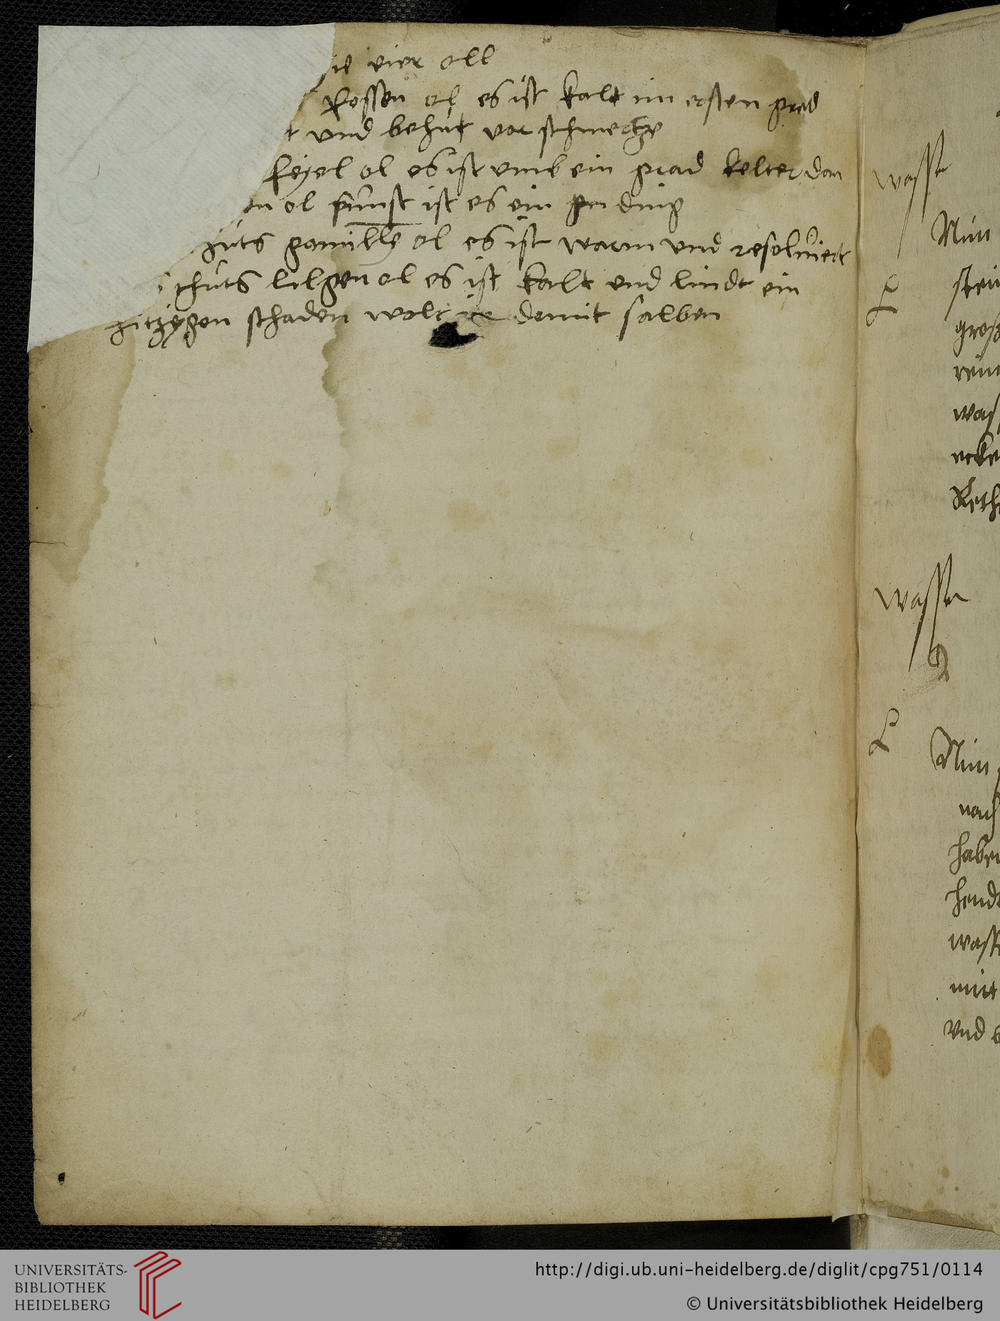 ie vier oll
Rossen ol es ist kalt im ersten grad
t vnd behut vor schmertze
feyel ol es ist vmb ein grad kelter dan
en ol sunst ist es ein ding
guts gamille ol es ist warm vnd resolviert
guts lilgen ol es ist kalt vnd lindt ein
hitzygen schaden wolt ir damit salben
wasser
Nim
stein
gros
rein
was
Reth
wasser
2
Nim
nach
haben
hend
wass
mit
vnd b
UNIVERSITÄTS-
BIBLIOTHEK
HEIDELBERG
http://digi.ub.uni-heidelberg.de/diglit/cpg751/0114
© Universitätsbibliothek Heidelberg